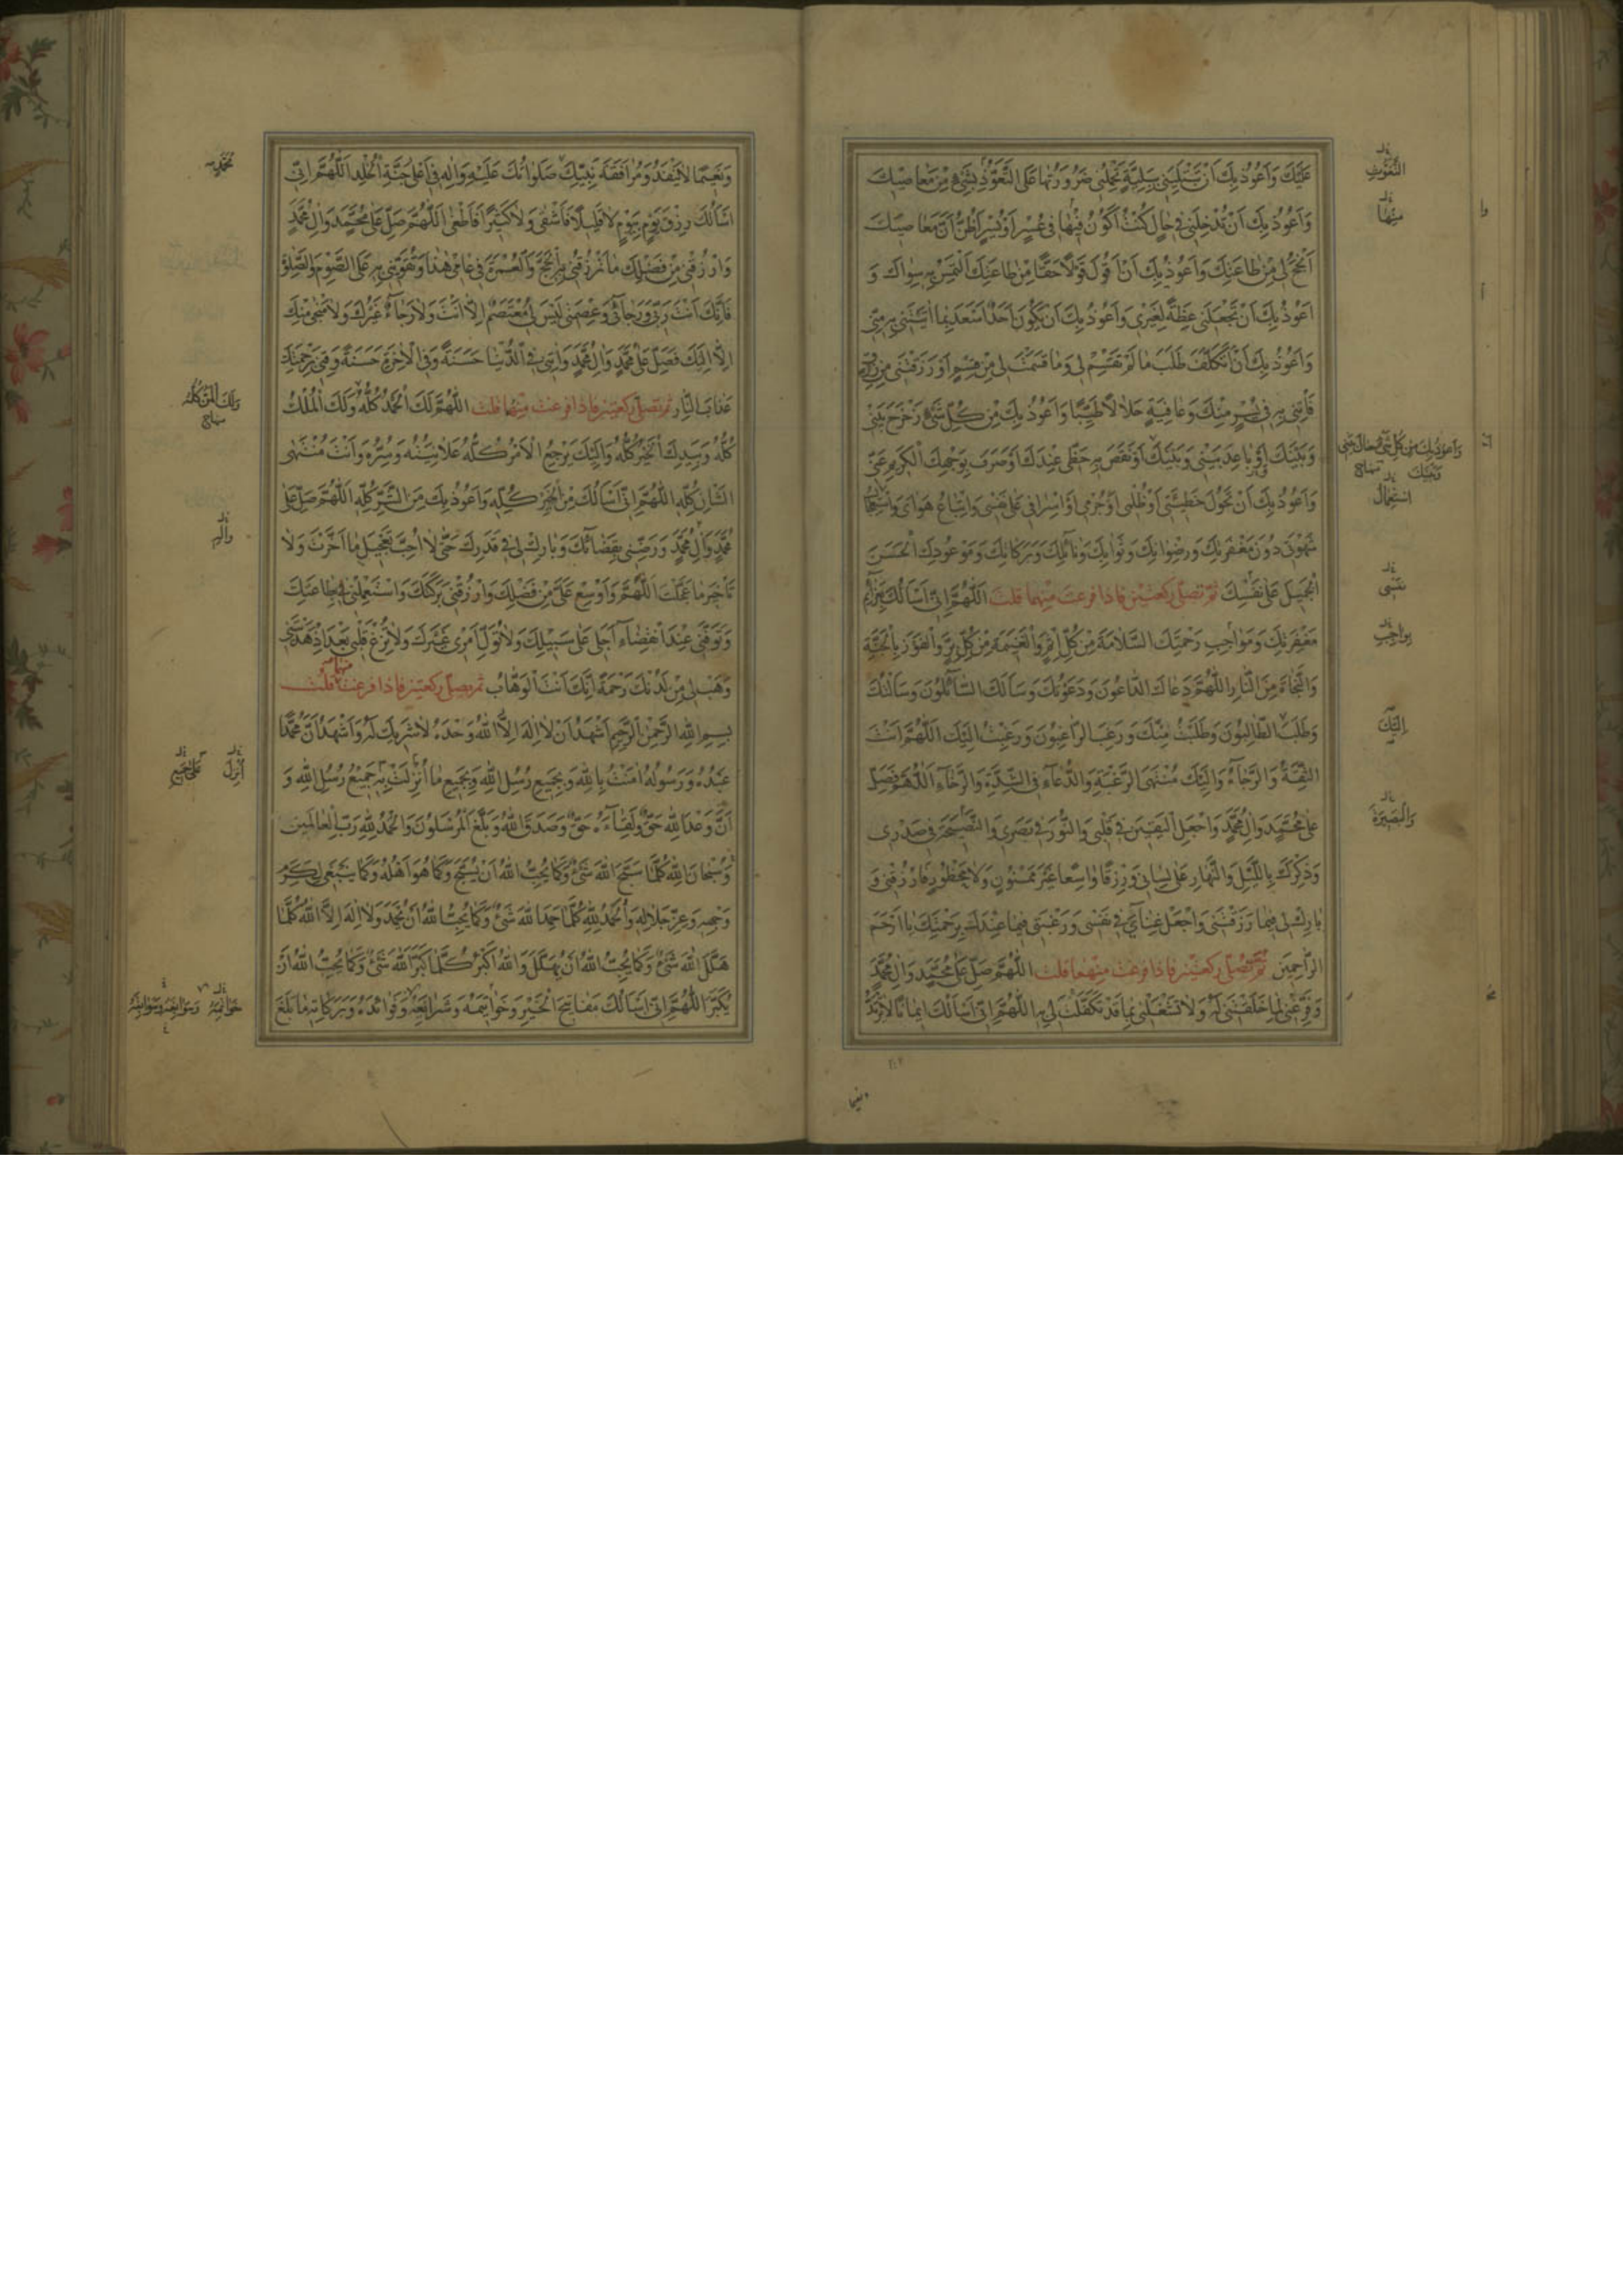 عَلَيْكَ وَاَعُوذُ بِكَ اَنْ تَبْتَلِيَنِى بِبَلِيَّةٍ تَحْمِلُنِى ضَرُورَتُها عَلَى التَّعَوُّذِ بِشَىْءٍ مِنْ مَعاصيكَ
وَاَعُوذُ بِكَ اَنْ تُدْخِلَنِى فى حالٍ كُنْتُ اَكُونُ فيها فى عُسْرٍ اَوْ يُسْرٍ اَظُنُّ اَنَّ مَعاصيكَ
اَنْجَحُ لى مِنْ طاعَتِكَ وَاَعُوذُ بِكَ اَنْ اَقُولَ قَوْلاً حَقًّا مِنْ طاعَتِكَ اَلْتَمِسُ بِهِ سِواكَ وَ
اَعُوذُ بِكَ اَنْ تَجْعَلَنى عِظَةً لِغَيْرى وَاَعُوذُ بِكَ اَنْ يَكُونَ اَحَدٌ اَسْعَدَ بِما اتَيْتَنى بِهِ مِنّى
وَاَعُوذُ بِكَ اَنْ اَتَكَلَّفَ طَلَبَ ما لَمْ تَقْسِمْ لى وَما قَسَمْتَ لى مِنْ قِسْمٍ اَوْ رَزَقْتَنى مِنْ رِزْقٍ
فَأْتِنى بِهِ فى يُسْرٍ مِنْكَ وَعافِيَةٍ حَلالاً طَيِّبًا وَاَعُوذُ بِكَ مِنْ كُلِّ شَىْءٍ زَحْزَحَ بَيْنى
وَبَيْنَكَ اَوْ باعَدَ بَيْنى وَبَيْنَكَ اَوْ نَقَصَ بِهِ حَظّى عِنْدَكَ اَوْ صَرَفَ بِوَجْهِكَ الْكَريمِ عَنّى
وَاَعُوذُ بِكَ اَنْ تَحُولَ خَطيئَتى اَوْ ظُلْمى اَوْ جُرْمى اَوْ اِسْرافى عَلى نَفْسى وَاتِّباعُ هَواىَ وَاسْتِعْجالُ
شَهْوَتى دُونَ مَغْفِرَتِكَ وَرِضْوانِكَ وَثَوابِكَ وَنائِلِكَ وَبَرَكاتِكَ وَمَوْعُودِكَ الْحَسَنِ
الْجَميلِ عَلى نَفْسِكَ ثمّ تصلّى ركعتين فاذا فرغت منهما قلت اَللّهُمَّ اِنّى اَسْاَلُكَ بِعَزائِمِ
مَغْفِرَتِكَ وَمَواجِبِ رَحْمَتِكَ السَّلامَةَ مِنْ كُلِّ اِثْمٍ وَالْغَنيمَةَ مِنْ كُلِّ بِرٍّ وَالْفَوْزَ بِالْجَنَّةِ
وَالنَّجاةَ مِنَ النّارِ اَللّهُمَّ دَعاكَ الدّاعُونَ وَدَعَوْتُكَ وَسَاَلَكَ السّائِلُونَ وَسَاَلْتُكَ
وَطَلَبَ الطّالِبُونَ وَطَلَبْتُ مِنْكَ وَرَغِبَ الرّاغِبُونَ وَرَغِبْتُ اِلَيْكَ اَللّهُمَّ اَنْتَ
الثِّقَةُ وَالرَّجاءُ وَاِلَيْكَ مُنْتَهَى الرَّغْبَةِ وَالدُّعاءِ فِى الشِّدَّةِ وَالرَّخاءِ اَللّهُمَّ فَصَلِّ
عَلى مُحَمَّدٍ وَالِ مُحَمَّدٍ وَاجْعَلِ الْيَقينَ فى قَلْبى وَالنُّورَ فى بَصَرى وَالنَّصيحَةَ فى صَدْرى
وَذِكْرَكَ بِاللَّيْلِ وَالنَّهارِ عَلى لِسانى وَرِزْقًا واسِعًا غَيْرَ مَمْنُونٍ وَلا مَحْظُورٍ فَارْزُقْنى وَ
بارِكْ لى فيما رَزَقْتَنى وَاجْعَلْ غِناىَ فى نَفْسى وَرَغْبَتى فيما عِنْدَكَ بِرَحْمَتِكَ يا اَرْحَمَ
الرّاحِمينَ ثمّ تصلّى ركعتين فاذا فرغت منهما قلت اَللّهُمَّ صَلِّ عَلى مُحَمَّدٍ وَالِ مُحَمَّدٍ
وَفَرِّغْنى لِما خَلَقْتَنى لَهُ وَلا تَشْغَلْنى بِما قَدْ تَكَفَّلْتَ لى بِهِ اَللّهُمَّ اِنّى اَسْاَلُكَ ايمانًا لا يَرْتَدُّ
مِنْها
اسْتِعْجالُ
نَفْسى
اِلَيْكَ
وَالْبَصيرَةَ
وَنَعيمًا لا يَنْفَدُ وَمُرافَقَةَ نَبِيِّكَ صَلَواتُكَ عَلَيْهِ وَالِهِ فى اَعْلى جَنَّةِ الْخُلْدِ اَللّهُمَّ اِنّى
اَسْاَلُكَ رِزْقَ يَوْمٍ بِيَوْمٍ لا قَليلاً فَاَشْقى وَلا كَثيرًا فَاَطْغى اَللّهُمَّ صَلِّ عَلى مُحَمَّدٍ وَالِ مُحَمَّدٍ
وَارْزُقْنى مِنْ فَضْلِكَ ما تَرْزُقُنى بِهِ الْحَجَّ وَالْعُمْرَةَ فى عامى هذا وَتُقَوّينى بِهِ عَلَى الصَّوْمِ وَالصَّلوةِ
فَاِنَّكَ اَنْتَ رَبّى وَرَجائى وَعِصْمَتى لَيْسَ لى مُعْتَصَمٌ اِلاّ اَنْتَ وَلا رَجاءٌ غَيْرُكَ وَلا مَنْجى مِنْكَ
اِلاّ اِلَيْكَ فَصَلِّ عَلى مُحَمَّدٍ وَالِ مُحَمَّدٍ وَاتِنى فِى الدُّنْيا حَسَنَةً وَفِى الاخِرَةِ حَسَنَةً وَقِنى بِرَحْمَتِكَ
عَذابَ النّارِ ثم تصلّى ركعتين فاذا فرغت منهما قلت اَللّهُمَّ لَكَ الْحَمْدُ كُلُّهُ وَلَكَ الْمُلْكُ
كُلُّهُ وَبِيَدِكَ الْخَيْرُ كُلُّهُ وَاِلَيْكَ يَرْجِعُ الاَمْرُ كُلُّهُ عَلانِيَتُهُ وَسِرُّهُ وَاَنْتَ مُنْتَهَى
الشَّأْنِ كُلِّهِ اَللّهُمَّ اِنّى اَسْاَلُكَ مِنَ الْخَيْرِ كُلِّهِ وَاَعُوذُ بِكَ مِنَ الشَّرِّ كُلِّهِ اَللّهُمَّ صَلِّ عَلى
مُحَمَّدٍ وَالِ مُحَمَّدٍ وَرَضِّنى بِقَضائِكَ وَبارِكْ لى فى قَدَرِكَ حَتّى لا اُحِبَّ تَعْجيلَ ما اَخَّرْتَ وَلا
تَأْخيرَ ما عَجَّلْتَ اَللّهُمَّ وَاَوْسِعْ عَلَىَّ مِنْ فَضْلِكَ وَارْزُقْنى بَرَكَتَكَ وَاسْتَعْمِلْنى فى طاعَتِكَ
وَتَوَفَّنى عِنْدَ انْقِضاءِ اَجَلى عَلى سَبيلِكَ وَلا تُوَلِّ اَمْرى غَيْرَكَ وَلا تُزِغْ قَلْبى بَعْدَ اِذْ هَدَيْتَنى
وَهَبْ لى مِنْ لَدُنْكَ رَحْمَةً اِنَّكَ اَنْتَ الْوَهّابُ ثم تصلّى ركعتين فاذا فرغت منهما قلت
بِسْمِ اللهِ الرَّحْمنِ الرَّحيمِ اَشْهَدُ اَنْ لا اِلهَ اِلاَّ اللهُ وَحْدَهُ لا شَريكَ لَهُ وَاَشْهَدُ اَنَّ مُحَمَّدًا
عَبْدُهُ وَرَسُولُهُ امَنْتُ بِاللهِ وَبِجَميعِ رُسُلِ اللهِ وَبِجَميعِ ما اُنْزِلَتْ بِهِ جَميعُ رُسُلِ اللهِ وَ
اَنَّ وَعْدَ اللهِ حَقٌّ وَلِقاءَهُ حَقٌّ وَصَدَقَ اللهُ وَبَلَّغَ الْمُرْسَلُونَ وَالْحَمْدُ لِلّهِ رَبِّ الْعالَمينَ
وَسُبْحانَ اللهِ كُلَّما سَبَّحَ اللهَ شَىْءٌ وَكَما يُحِبُّ اللهُ اَنْ يُسَبَّحَ وَكَما هُوَ اَهْلُهُ وَكَما يَنْبَغى لِكَرَمِ
وَجْهِهِ وَعِزِّ جَلالِهِ وَالْحَمْدُ لِلّهِ كُلَّما حَمِدَ اللهَ شَىْءٌ وَكَما يُحِبُّ اللهُ اَنْ يُحْمَدَ وَلا اِلهَ اِلاَّ اللهُ كُلَّما
هَلَّلَ اللهَ شَىْءٌ وَكَما يُحِبُّ اللهُ اَنْ يُهَلَّلَ وَاللهُ اَكْبَرُ كُلَّما كَبَّرَ اللهَ شَىْءٌ وَكَما يُحِبُّ اللهُ اَنْ
يُكَبَّرَ اَللّهُمَّ اِنّى اَسْاَلُكَ مَفاتِحَ الْخَيْرِ وَخَواتيمَهُ وَشَرائِعَهُ وَفَوائِدَهُ وَبَرَكاتِهِ ما بَلَغَ
مُحَمَّدٍ
وَالِهِ
اُنْزِلَ